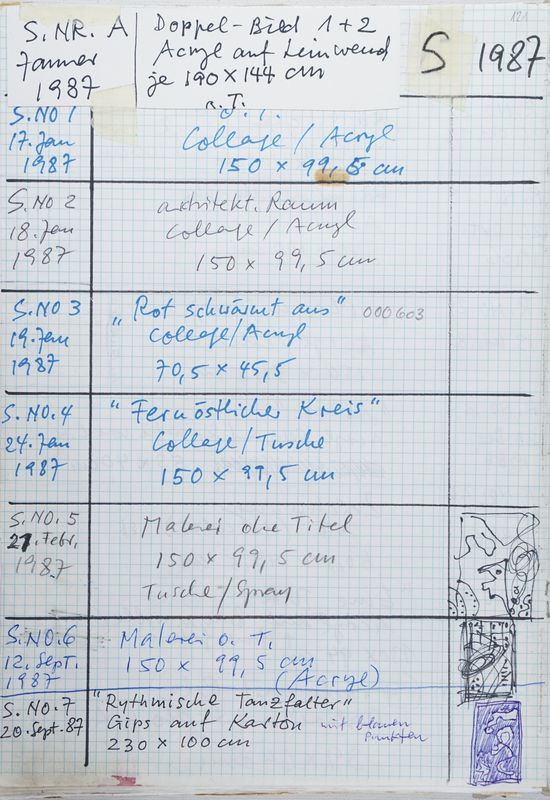 121
S. NR. A
Jänner
1987
Doppel-Bild 1+2
Acryl auf Leinwand
je 190 x 144 cm
o. T.
S 1987
S. NO 1
17. Jan
1987
o. T.
Collage / Acryl
150 x 99,5 cm
S. NO 2
18. Jan
1987
arkitekt. Raum
Collage / Acryl
150 x 99,5 cm
S. NO 3
19. Jan
1987
„Rot schwärmt aus"
000603
Collage/Acryl
70,5 x 45,5
S. NO. 4
24. Jan
1987
"Fernöstlicher Kreis"
Collage/Tusche
150 x 99,5 cm
S. NO. 5
21. Febr.
1987.
Malerei ohe Titel
150 x 99,5 cm
Tusche/Spray
S. NO. 6
12. Sept.
1987
Malerei o. T.
150 x 99,5 cm
(Acryl)
S. NO. 7
20. Sept. 87
"Rythmische Tanzfalter"
Gips auf Karton
mit blauen
Punkten
230 x 100 cm